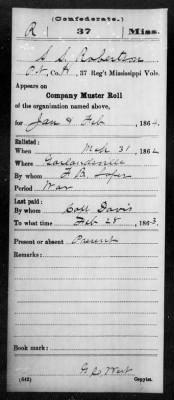 (Confederate.)
R 37 Miss.
S. S. Robertson
Pvt, Co. K, 37 Reg't Mississippi Vols.
Appears on
Company Muster Roll
of the organization named above,
for Jan & Feb, 1864.
Enlisted:
When Mch 31, 1862
Where Garlandsville
By whom J. B. Loper
Period War
Last paid:
By whom Capt Davis
To what time Feb 28, 1863.
Present or absent Present
Remarks:
Book mark:
(642) G. C. West
Copyist.